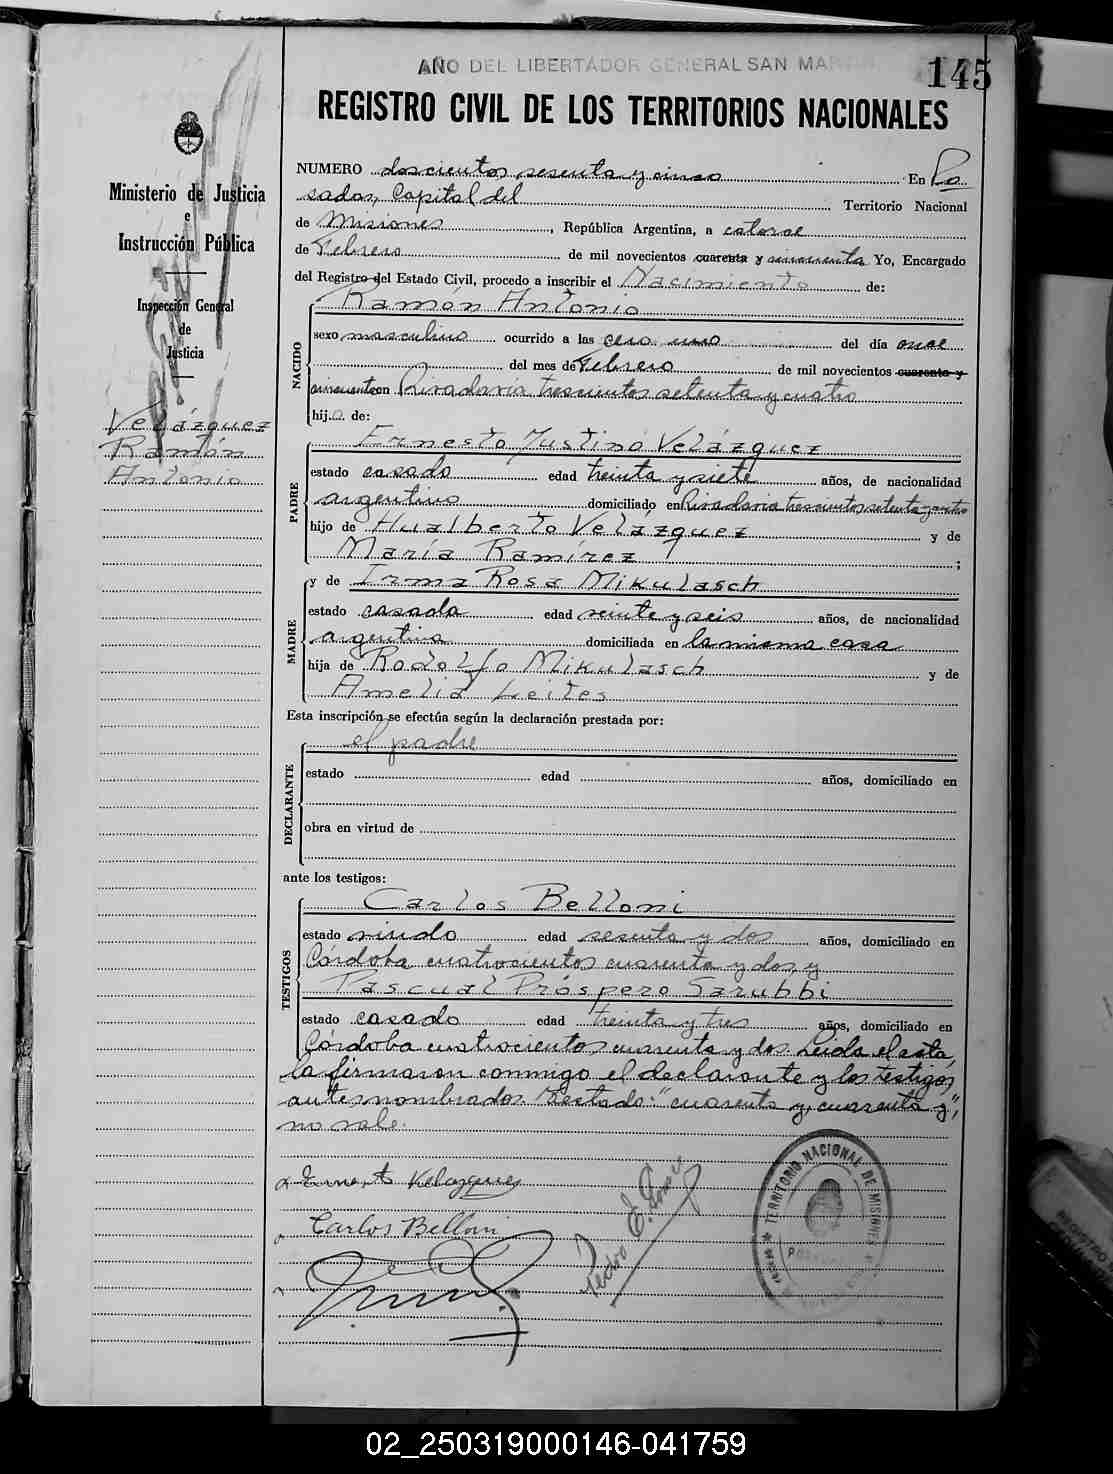 AÑO DEL LIBERTADOR GENERAL SAN MARTIN
145
REGISTRO CIVIL DE LOS TERRITORIOS NACIONALES
Ministerio de Justicia
e
Instrucción Pública
Inspección General
de
Justicia
Velázquez
Ramón
Antonio
NUMERO doscientos sesenta y cinco En Po
sadas, Capital del Territorio Nacional
de Misiones, República Argentina, a catorce
de Febrero de mil novecientos cuarenta y cincuenta Yo, Encargado
del Registro del Estado Civil, procedo a inscribir el Nacimiento de:
NACIDO
Ramón Antonio
sexo masculino ocurrido a las cero una del día once
del mes de Febrero de mil novecientos cuarenta y
cincuenta en Rivadavia trescientos setenta y cuatro
hijo de:
PADRE
Ernesto Justino Velázquez
estado casado edad treinta y siete años, de nacionalidad
argentino domiciliado en Rivadavia trescientos setenta y cuatro
hijo de Hualberto Velázquez y de
María Ramírez ;
MADRE
y de Irma Rosa Mikulasch
estado casada edad veinte y seis años, de nacionalidad
argentina domiciliada en la misma casa
hija de Rodolfo Mikulasch y de
Amelia Leites
Esta inscripción se efectúa según la declaración prestada por:
el padre
DECLARANTE
estado edad años, domiciliado en
obra en virtud de
ante los testigos:
TESTIGOS
Carlos Belloni
estado viudo edad sesenta y dos años, domiciliado en
Córdoba cuatrocientos cuarenta y dos, y
Pascual Próspero Sarubbi
estado casado edad treinta y tres años, domiciliado en
Córdoba cuatrocientos cuarenta y dos. Leida el acta,
la firmaron conmigo el declarante y los testigos
antes nombrados. Testado: "cuarenta y, cuarenta y",
no vale.
Ernesto Velazquez
Carlos Belloni
Pedro E. Gomez
TERRITORIO NACIONAL DE MISIONES
02_250319000146-041759